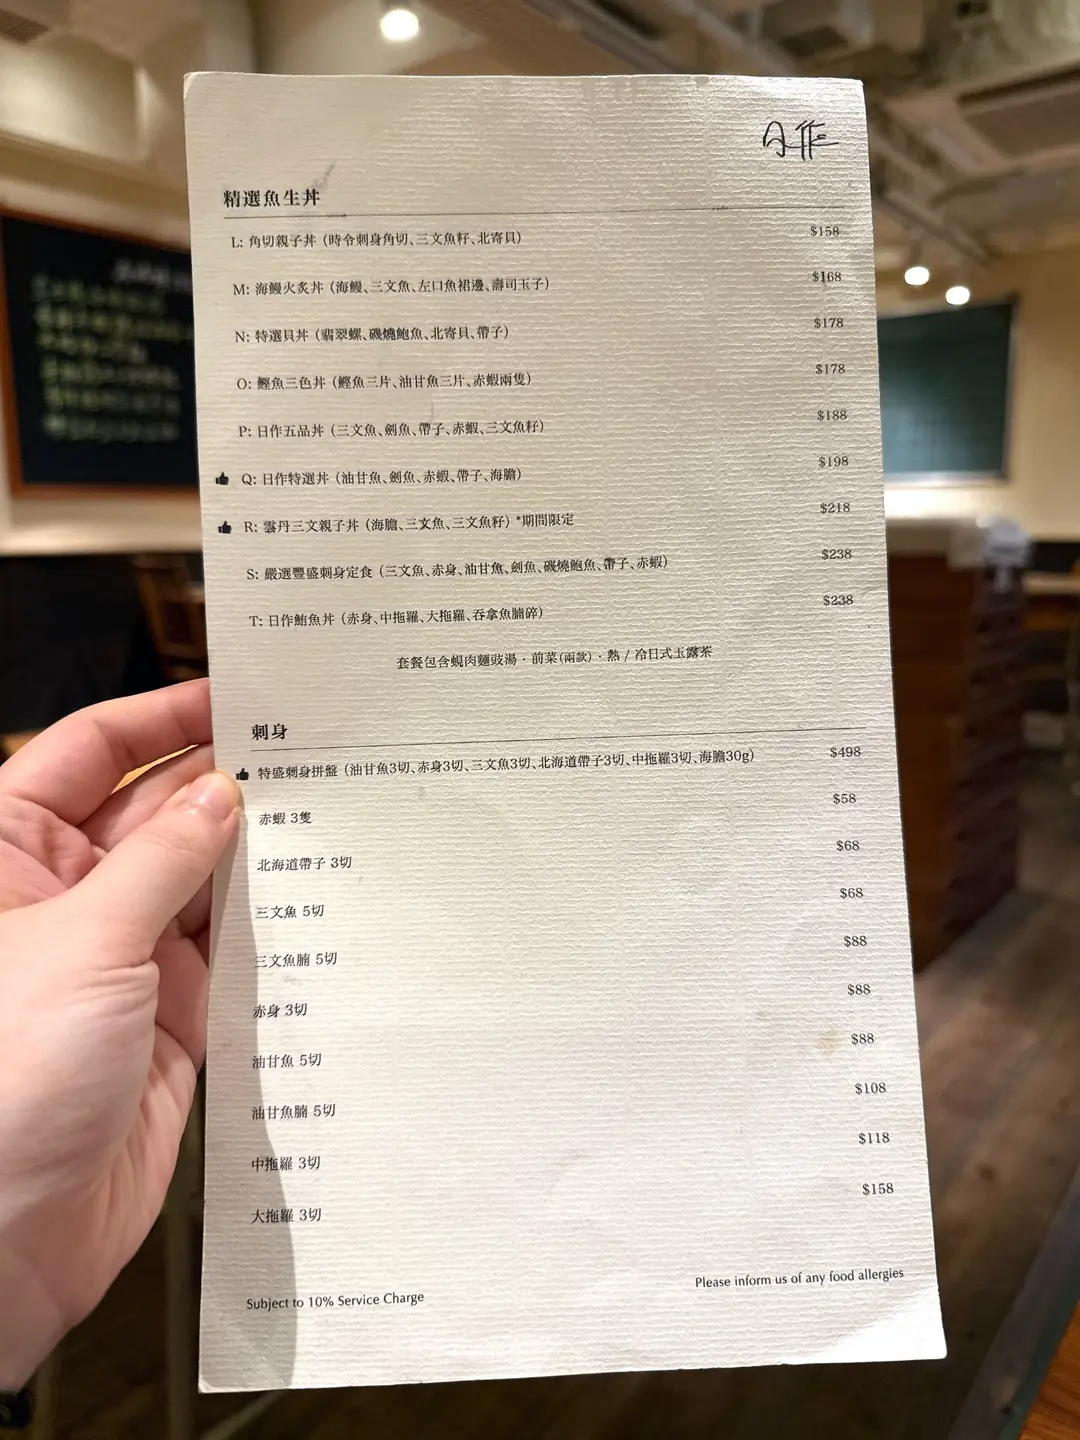 日作
精選魚生丼
L: 角切親子丼 (時令刺身角切、三文魚籽、北寄貝) $158
M: 海鰻火炙丼 (海鰻、三文魚、左口魚裙邊、壽司玉子) $168
N: 特選貝丼 (翡翠螺、磯燒鮑魚、北寄貝、帶子) $178
O: 鰹魚三色丼 (鰹魚三片、油甘魚三片、赤蝦兩隻) $178
P: 日作五品丼 (三文魚、劍魚、帶子、赤蝦、三文魚籽) $188
Q: 日作特選丼 (油甘魚、劍魚、赤蝦、帶子、海膽) $198
R: 雲丹三文親子丼 (海膽、三文魚、三文魚籽) *期間限定 $218
S: 嚴選豐盛刺身定食 (三文魚、赤身、油甘魚、劍魚、磯燒鮑魚、帶子、赤蝦) $238
T: 日作鮪魚丼 (赤身、中拖羅、大拖羅、吞拿魚腩碎) $238
套餐包含蜆肉麵豉湯 · 前菜(兩款) · 熱 / 冷日式玉露茶
刺身
特盛刺身拼盤 (油甘魚3切、赤身3切、三文魚3切、北海道帶子3切、中拖羅3切、海膽30g) $498
赤蝦 3隻 $58
北海道帶子 3切 $68
三文魚 5切 $68
三文魚腩 5切 $88
赤身 3切 $88
油甘魚 5切 $88
油甘魚腩 5切 $108
中拖羅 3切 $118
大拖羅 3切 $158
Subject to 10% Service Charge
Please inform us of any food allergies